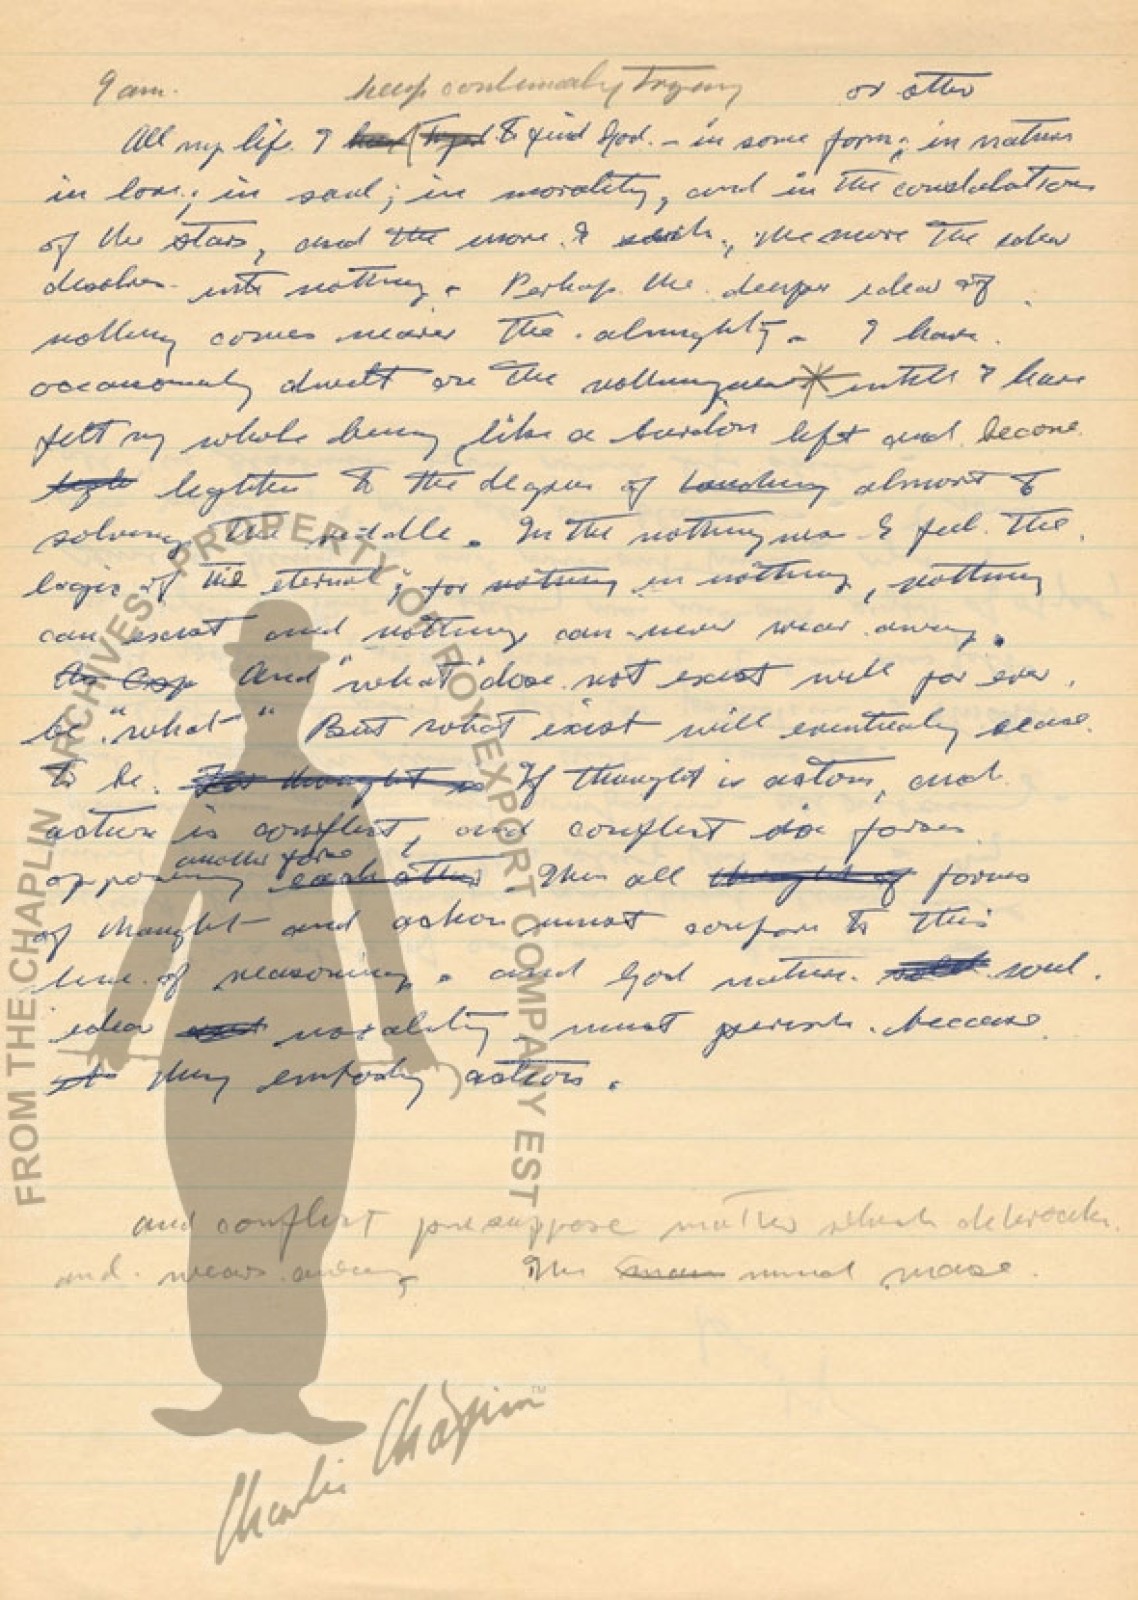 9 am. keep continualy trying or other
All my life I have tryed to find God. – in some form; in nature
in love; in soul; in morality, and in the constalations
of the stars, and the more I seach, the more the idea
disolves into nothing. Perhaps the deeper idea of
nothing comes nearer the almighty. I have
occasionaly dwelt on the nothingness * untill I have
felt my whole being like a burdon left and become
light lighter to the degree of touching almost to
solving the riddle. In the nothingness I feel the
logic of the eternal, for nothing in nothing, nothing
can exsist and nothing can never wear away.
And "what" dose not exsist will for ever
be "what" But what exist will eventualy cease
to be. For thought is If thought is action, and
action is conflict, and conflict is forces
another force
opposing each other Then all thought of forms
of thought and action must conform to this
line of reasoning. and God nature soul
idea morality must perish because
they embody actions.
and conflict presuppose matter which
and wears away, The must
FROM THE CHAPLIN ARCHIVES PROPERTY OF ROY EXPORT COMPANY EST
Charlie Chaplin ™